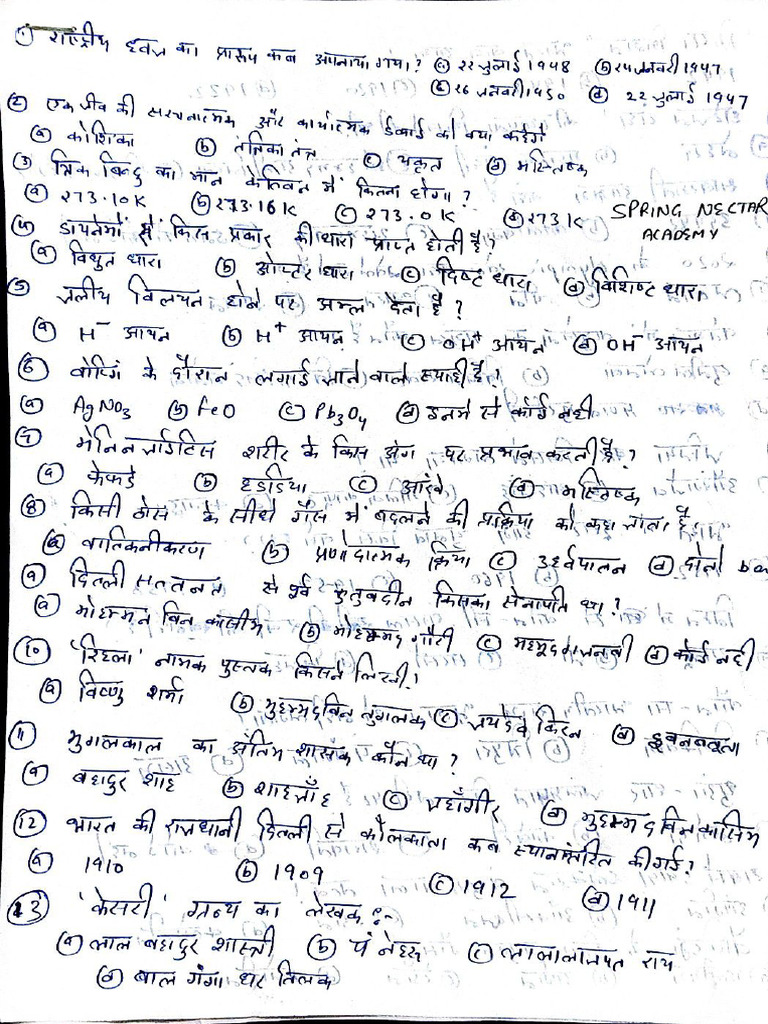 ① राष्ट्रीय ध्वज का प्रारूप कब अपनाया गया? ⓐ २२ जुलाई 1948 ⓑ २५ जनवरी 1947
ⓒ २6 जनवरी 1950 ⓓ २२ जुलाई 1947
② एक जीव की संरचनात्मक और कार्यात्मक ईकाई को क्या कहेंगे
ⓐ कोशिका ⓑ तंत्रिका तंत्र ⓒ यकृत ⓓ मस्तिष्क
③ त्रिक बिन्दु का मान केल्विन में कितना होगा?
ⓐ २73.10K ⓑ २73.16K ⓒ २73.0K ⓓ २73 K
SPRING NECTAR
ACADEMY
④ डायनेमों से किस प्रकार की धारा प्राप्त होती है?
ⓐ विधुत धारा ⓑ ओल्टर धारा ⓒ दिष्ट धारा ⓓ विशिष्ट धारा
⑤ जलीय विलयन होने पर अम्ल देता है?
ⓐ H⁻ आयन ⓑ H⁺ आयन ⓒ OH⁺ आयन ⓓ OH⁻ आयन
⑥ वोटिंग के दौरान लगाई जाने वाले स्याही है?
ⓐ AgNO₃ ⓑ FeO ⓒ Pb₃O₄ ⓓ इनमे से कोई नही
⑦ मेनिनजाईटिस शरीर के किस अंग पर प्रभाव करती है?
ⓐ फेफडे ⓑ हडडिया ⓒ आंखे ⓓ मस्तिष्क
⑧ किसी ठोस के सीधे गैस में बदलने की प्रक्रिया को कहा जाता है।
ⓐ वाल्किनीकरण ⓑ प्रणोदात्मक क्रिया ⓒ उर्ध्वपालन ⓓ दोनो
⑨ दिल्ली सल्तनत से पूर्व कुतुबदीन किसका सेनापति था?
ⓐ मोहम्मन बिन कासीम ⓑ मोहम्मद गौरी ⓒ महमूद गजनवी ⓓ कोई नही
⑩ 'रिहला' नामक पुस्तक किसने लिखी?
ⓐ विष्णु शर्मा ⓑ मुहम्मद बिन तुगलक ⓒ जयदेव किरन ⓓ इबनबतूता
⑪ मुगलकाल का अंतिम शासक कौन था?
ⓐ बहादुर शाह ⓑ शाहजाँह ⓒ जहाँगीर ⓓ मुहम्मद बिन कासिम
⑫ भारत की राजधानी दिल्ली से कोलकाता कब स्थानांसरित की गई?
ⓐ 1910 ⓑ 1909 ⓒ 1912 ⓓ 1911
⑬ 'केसरी' ग्रन्थ का लेखक है:-
ⓐ लाल बहादुर शास्त्री ⓑ पं नेहरू ⓒ लालालाजपत राय
ⓓ बाल गंगा धर तिलक